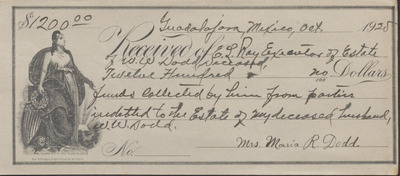 $1200.00
Guadalajara Mexico, Oct. 1928
Received of E. L. Ray Executor of Estate
of W.W. Dodd Deceased,
Twelve Hundred & no/100 Dollars
funds collected by him from parties
indebted to the Estate of my deceased husband,
W.W. Dodd.
No.
Mrs. Maria R. Dodd